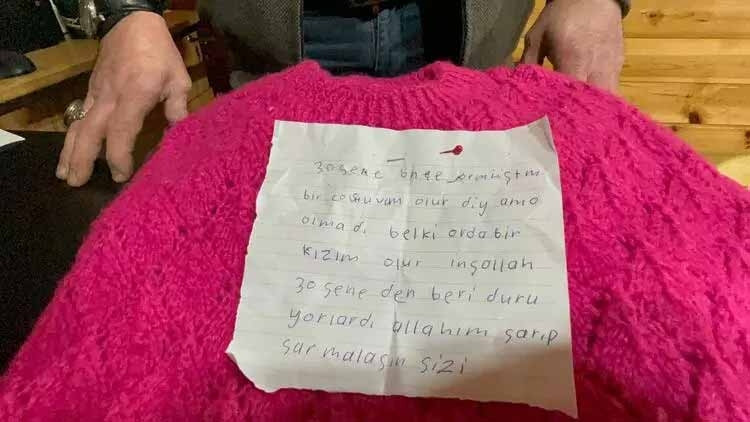 30 sene önce örmüştm
bir çocuğuvm olur diy ama
olmadı belki orda bir
kızım olur inşallah
30 sene den beri duru
yorlardı allahım sarıp
sarmalasın sizi